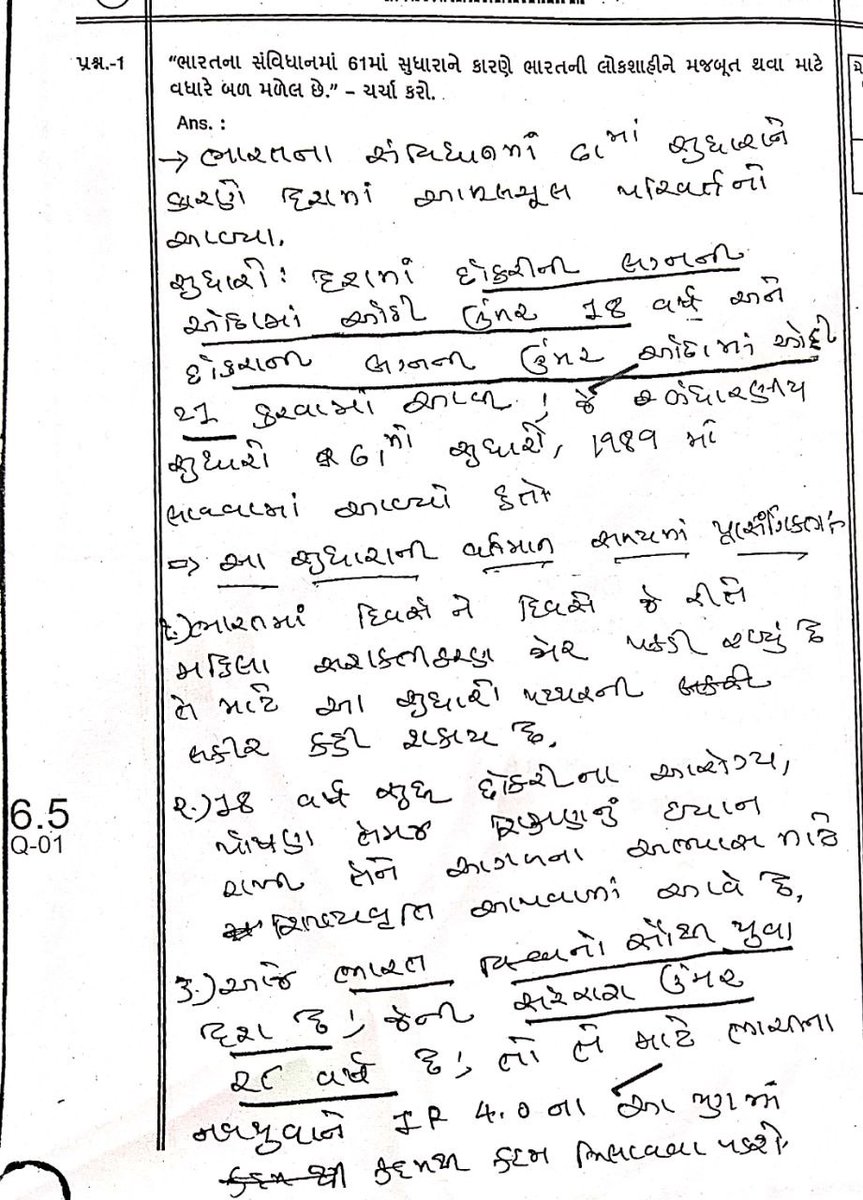 પ્રશ્ન.-1
"ભારતના સંવિધાનમાં 61માં સુધારાને કારણે ભારતની લોકશાહીને મજબૂત થવા માટે
વધારે બળ મળેલ છે." – ચર્ચા કરો.
Ans. :
→ ભારતના સંવિધાનમાં ૬૧માં સુધારાને
કારણે દેશમાં આમૂલચૂલ પરિવર્તનો
આવ્યા.
સુધારો: દેશમાં છોકરીની લગ્નની
ઓછામાં ઓછી ઉંમર 18 વર્ષ અને
છોકરાની લગ્નની ઉંમર ઓછામાં ઓછી
21 કરવામાં આવી ; જે બંધારણીય
સુધારો ૬૧મો સુધારો, ૧૯૮૧ માં
લાવવામાં આવ્યો હતો
⇒ આ સુધારાની વર્તમાન સમયમાં પ્રાસંગિકતા:
૧.) ભારતમાં દિવસે ને દિવસે જે રીતે
મહિલા સશક્તીકરણ જોર પકડી રહ્યું છે
તે માટે આ સુધારો પથ્થરની
લકીર કહી શકાય છે.
૨.) 18 વર્ષ સુધી છોકરીના આરોગ્ય,
પોષણ તેમજ શિક્ષણનું ધ્યાન
રાખી તેને આગળના અભ્યાસ માટે
શિષ્યવૃત્તિ આપવામાં આવે છે.
6.5
Q-01
૩.) આજે ભારત વિશ્વનો સૌથી યુવા
દેશ છે; જેની સરેરાશ ઉંમર
૨૮ વર્ષ છે; તો તે માટે ભારતના
નવયુવાને IR 4.0 ના આ યુગમાં
કદમથી કદમ મિલાવવા પડશે.